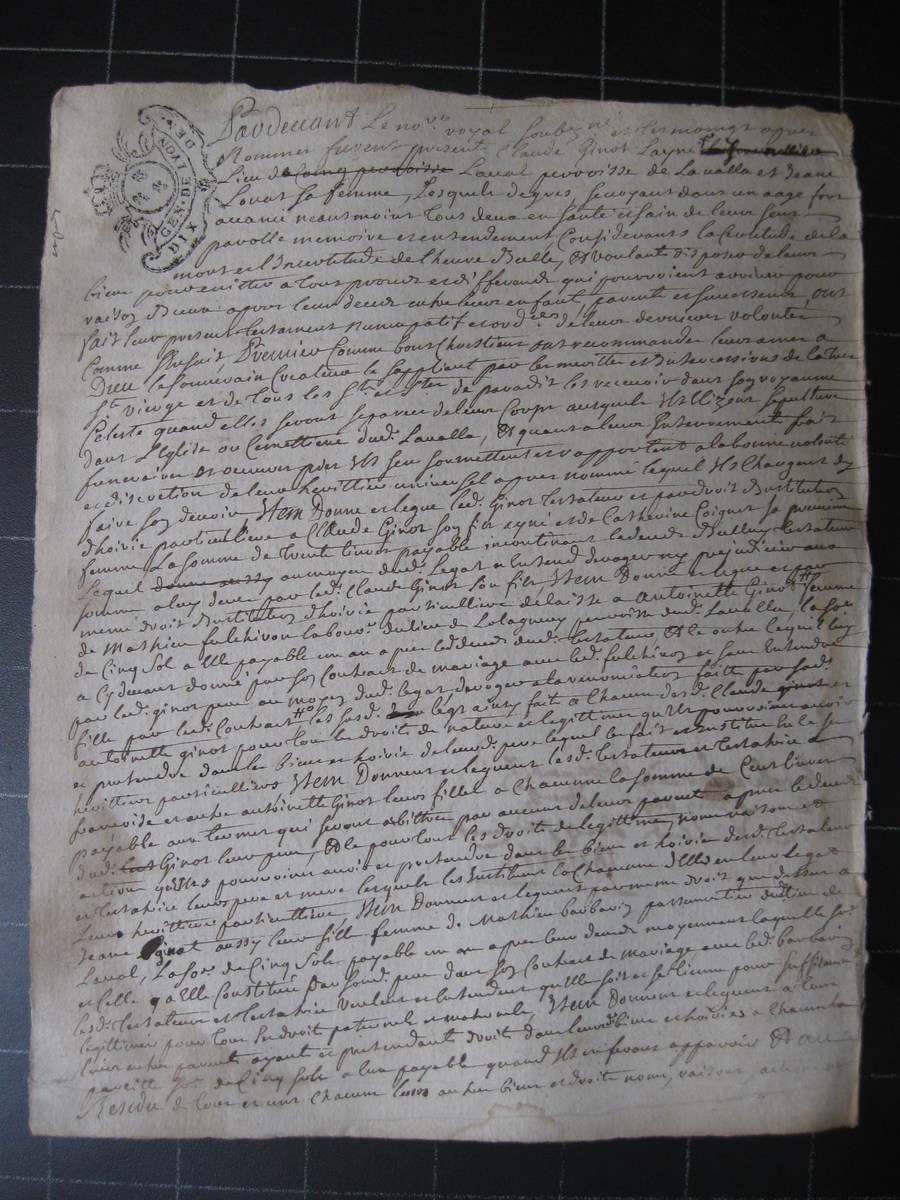 GEN. DE LYON
DIX DEN
Pardevant Le nore royal soubzne et tesmoingt apres
Nommes furent presents Claude Ginot Layne
Lieu de Laval parroisse de Lavalla et Jeane
Lovat sa femme, Lesquels de gres se voyant dans un aage fort
avancé neantmoint tous deux en santé et sain de leurs sens
parolle memoire et entendement Considerants la Certitude de la
mort et l'Incertitude de l'heure d'Icelle, et voulant disposer de leurs
bien pour evitter a tous proces et differends qui pourroient arriver pour
raison d'Iceux apres leur deces entre leurs enfant, parents et successeurs, ont
fait leur present testament nuncupatif et ordces de leurs dernieres volontes
Comme s'Ensuit, Premier Comme bons Chrestiens ont recommander leurs ames a
Dieu le souverain Createur le suppliant par les meritte et Intercessions de la tres
Ste vierge et de tous les Sts et Stes de paradis les recevoir dans son royaume
Celeste quand elles seront separees de leurs Corps auxquels Ils Elizent sepulture
dans L'Eglise ou Cemettiere dud. Lavalla, et quant a leurs Enterrement frait
funeraires et oeuvres pies Ils sen soumettent et rapportent a la bonne volonté
et discretion de leur herittier universel apres nommé lequel Ils Chargent d'en
faire son devoir Item Donne et legue led. Ginot testateur et par droit d'Institution
d'hoirie particuliere a Claude Ginot son fils ayné et de Catherine Coignet sa premiere
femme La somme de Trente livres payable incontinant le deces d'Icelluy testateur
Lequel au moyen dud. Legat n'Entend deroger ny prejudicier aux
somme a luy deue par led. Claude Ginot son fils, Item Donne et legue et par
meme droit d'Institution d'hoirie particulliere delaisse a Antoinette Ginot femme
de Mathieu fulchiron laboureur du lieu de parroisse dud. Lavalla, la soe
de Cinq Sol a Elle payable un an apres led. deces dud. testateur, et le outre Ce quil luy
a Cydevant donné par son Contract de mariage avec led. fulchiron et sans Entendre
par led. ginot pere au moyen dud. legat deroger a la renonciation faitte par sad.
fille par led. Contract les susd. legs ainsy fait a Chacun desd. Claude ginot et
antoinette ginot pour tous le droits de nature et legittimes qu'Ils pourroient avoir
et pretendre dans les bien et hoirie de leurd. pere lequel les fait et Institue les Se
herittiers particulliers Item Donnent et leguent lesd. Testateurs et Testatrice a
francoise et autre antoinette Ginot leurs filles a Chacune la somme de Cent livres
payable aux termes qui seront arbittres par aucuns de leurs parents apres le deces
dud. Ginot leur pere, et le pour tous les droits de legittime, noms raison et
action qu'Elles pourroient avoir et pretendre dans les bien et hoirie desd. Testateur
et Testatrice leurs pere et mere lesquels les Instituent a Chacune d'Elles en leur legat
leurs herittiere particulliere Item Donnent et leguent par meme droit que dessus a
Jeane ginot aussy leur fille femme de Mathieu barbarin passementier du lieu de
Laval, La soe de Cinq Sols payable un an apres leur deces moyennant laquelle soe
et Celle qu'Elle Constituee par sond. pere dans son Contract de mariage avec led. barbarin
lesd. Testateur et Testatrice veulent et entendent qu'Elle soit et se tienne pour suffisamment
legittimee pour tous ses droits paternels et maternels, Item Donnent et leguent a tous
autres parents ayants et pretendants droits dans leurd. bien et hoiries a Chacun la
pareille soe de Cinq Sols a eux payable quand Ils en feront apparoir Et au
Residu de tous et uns Chacuns leurs autres bien et droits noms, raisons actions